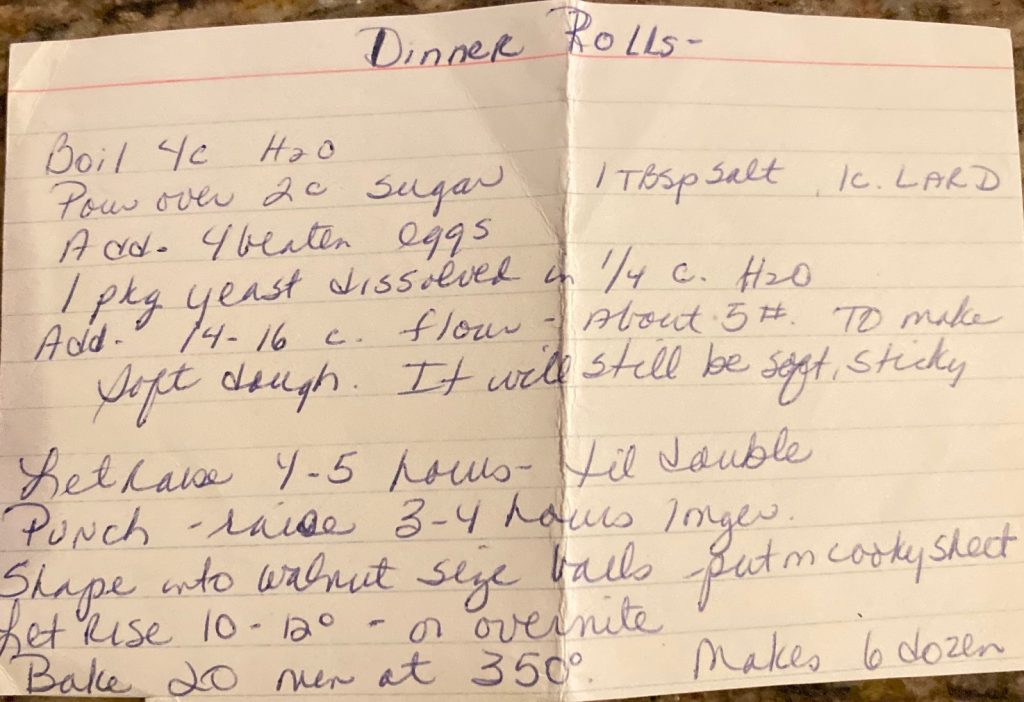 Dinner Rolls-
Boil 4c H2O
Pour over 2c sugar 1 TBSp Salt, 1c. LARD
Add- 4 beaten eggs
1 pkg yeast dissolved in 1/4 c. H2O
Add- 14-16 c. flour - About 5#. TO make
soft dough. It will still be soft, sticky
Let raise 4-5 hours- til double
Punch - raise 3-4 hours longer.
Shape into walnut size balls - put on cooky sheet
Let RISE 10-12° - or overnite
Bake 20 min at 350°. Makes 6 dozen